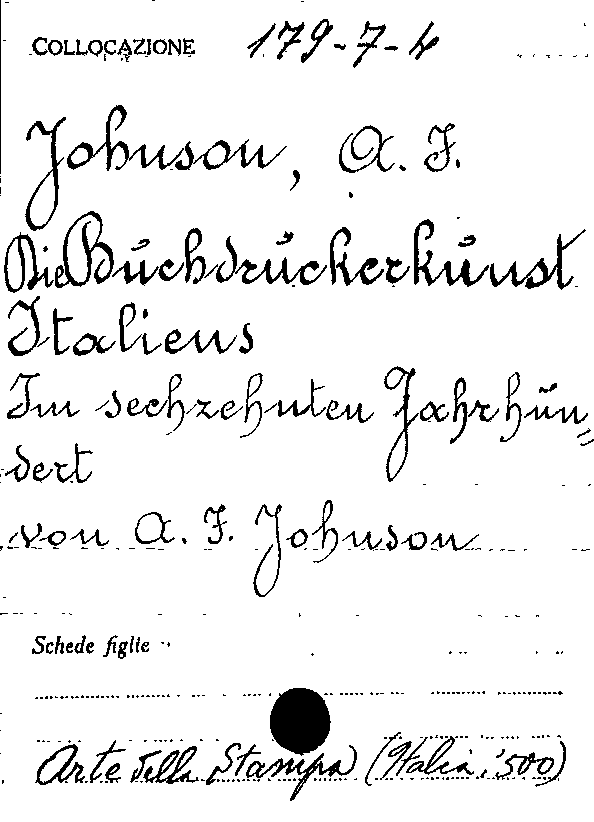 COLLOCAZIONE 179-7-4
Johnson, A. F.
Die Buchdruckerkunst
Italiens
Im sechzehnten Jahrhun=
dert
von A. F. Johnson
Schede figlie
Arte della Stampa (Italia, '500)